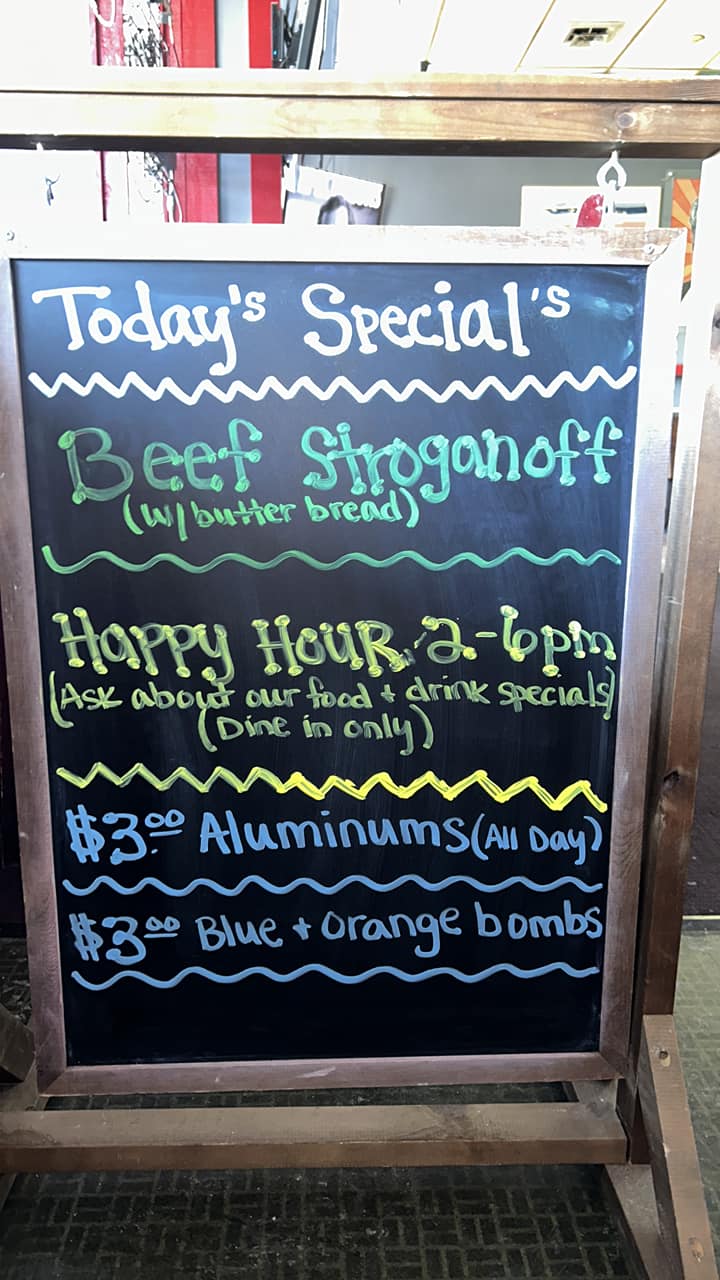 Today's Special's
Beef Stroganoff
(w/butter bread)
Happy Hour 2-6pm
(Ask about our food + drink specials)
(Dine in only)
$3.00 Aluminums (All Day)
$3.00 Blue + orange bombs